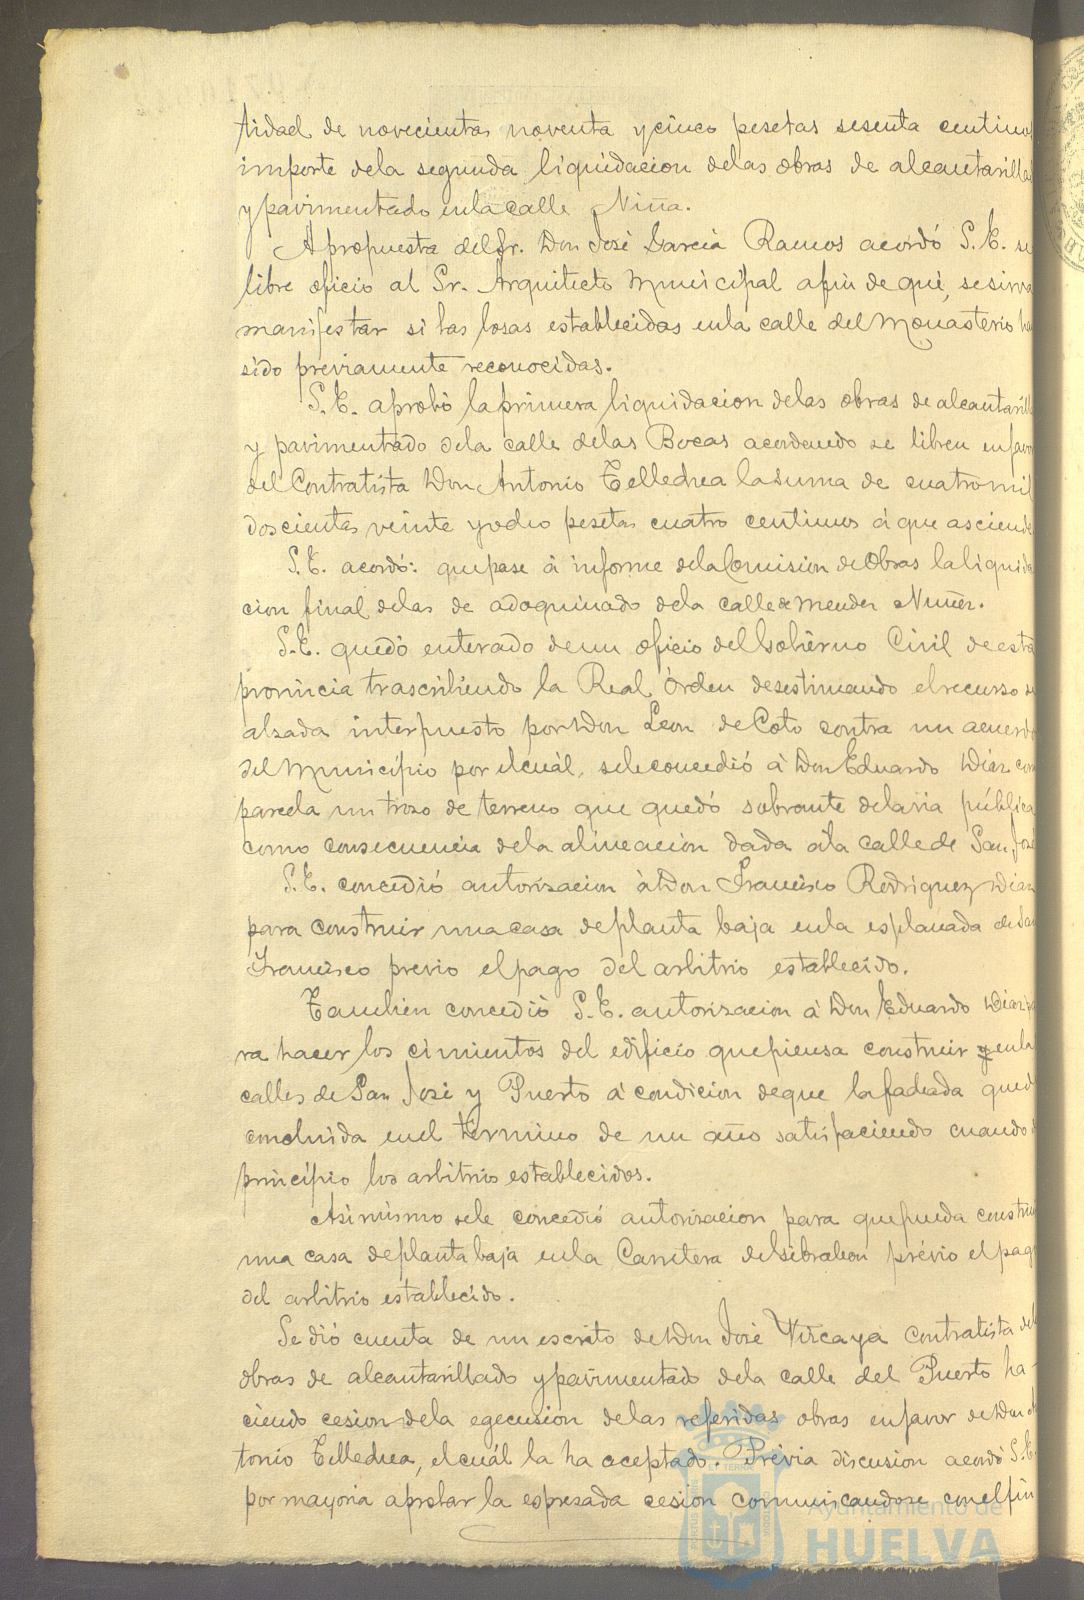 tidad de novecientas noventa y cinco pesetas sesenta centimos
importe de la segunda liquidacion de las obras de alcantarillado
y pavimentado en la calle Niña.
A propuesta del Sr. Don José Garcia Ramos acordó S.E. se
libre oficio al Sr. Arquitecto Municipal a fin de que, se sirva
manifestar si las losas establecidas en la calle del Monasterio han
sido previamente reconocidas.
S.E. aprobó la primera liquidacion de las obras de alcantarill
y pavimentado de la calle de las Bocas acordando se libren en favor
del Contratista Don Antonio Tellechea la suma de cuatro mil
doscientas veinte y ocho pesetas cuatro centimos á que asciende
S.E. acordó: que pase á informe de la Comision de Obras la liquida
cion final de las de adoquinado de la calle de Mendez Nuñez.
S.E. quedó enterado de un oficio del Gobierno Civil de esta
provincia trascribiendo la Real Orden desestimando el recurso de
alzada interpuesto por Don Leon de Coto contra un acuerdo
del Municipio por el cuál, se le concedió á Don Eduardo Diaz como
parcela un trozo de terreno que quedó sobrante de la via pública
como consecuencia de la alineacion dada a la calle de San José
S.E. concedió autorizacion á Don Francisco Rodriguez Diaz
para construir una casa de planta baja en la esplanada de San
Francisco previo el pago del arbitrio establecido.
Tambien concedió S.E. autorizacion á Don Eduardo Diaz pa
ra hacer los cimientos del edificio que piensa construir en la
calles de San José y Puerto á condicion de que la fachada quede
concluida en el término de un año satisfaciendo cuando dé
principio los arbitrios establecidos.
Asimismo se le concedió autorizacion para que pueda construir
una casa de planta baja en la Carretera de Gibraleon prévio el pago
del arbitrio establecido.
Se dió cuenta de un escrito de Don José Vizcaya contratista de
obras de alcantarillado y pavimentado de la calle del Puerto ha-
ciendo cesion de la egecusion de las referidas obras en favor de Don An
tonio Tellechea, el cuál la ha aceptado. Prévia discusion acordó S.E.
por mayoria aprobar la espresada cesion comunicandose con el fin
Ayuntamiento de
HUELVA